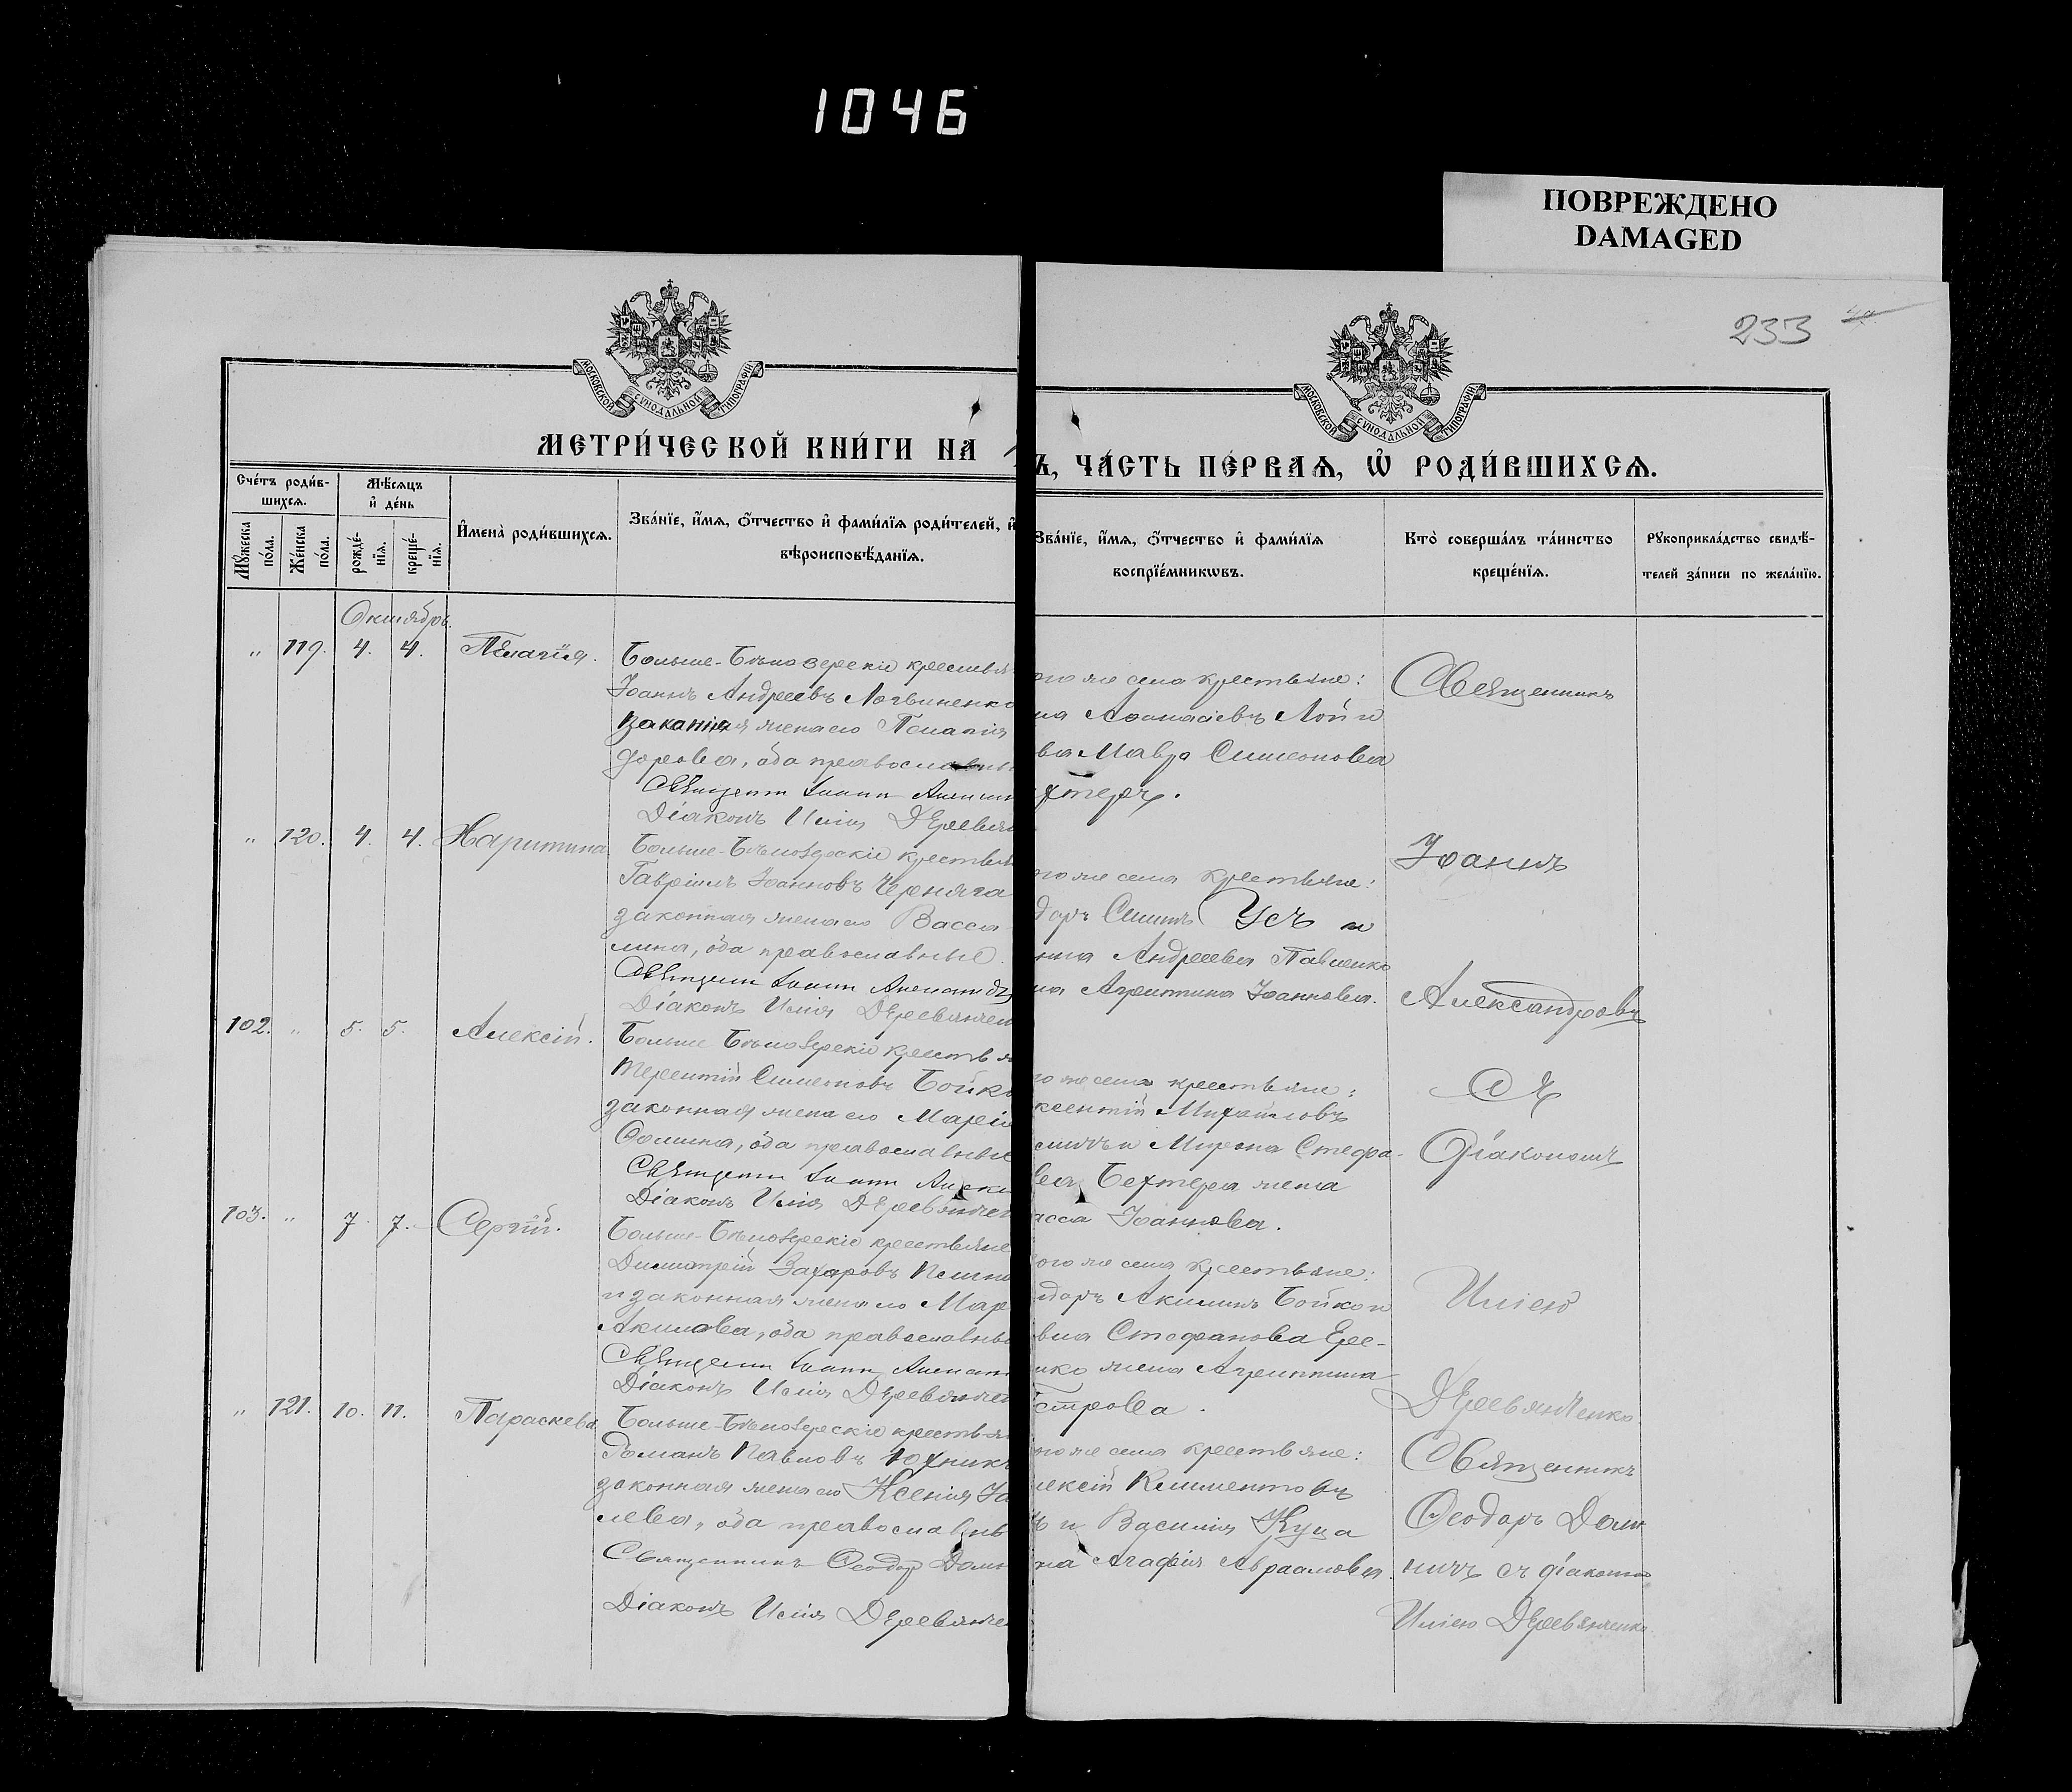 1046
ПОВРЕЖДЕНО
DAMAGED
233
МОСКОВСКОЙ СѴНОДАЛЬНОЙ ТИПОГРАФІИ
МОСКОВСКОЙ СѴНОДАЛЬНОЙ ТИПОГРАФІИ
МЕТРИ́ЧЕСКОЙ КНИ́ГИ НА
Ъ, ЧА́СТЬ ПЕ́РВАѦ, Ѡ҆ РОДИ́ВШИХСѦ.
Сче́тъ роди́в-
шихсѧ.
Мѣ́сѧцъ
и҆ де́нь
Мꙋ́жеска по́ла.
Же́нска по́ла.
рожде́-нїѧ.
креще́-нїѧ.
И҆мена̀ роди́вшихсѧ.
Зва́нїе, и҆́мѧ, ѻ҆́тчество и҆ фами́лїѧ роди́телей, и҆
вѣроисповѣ́данїѧ.
Зва́нїе, и҆́мѧ, ѻ҆́тчество и҆ фами́лїѧ
воспрїе́мникѡвъ.
Кто̀ соверша́лъ та́инство
креще́нїѧ.
Рꙋкоприкла́дство свидѣ́-
телей за́писи по жела́нїю.
Октябрь.
" 119. 4. 4. Пелагія.
Больше-Бѣлозерскіе крестья
Іоаннъ Андреевъ Логвиненко
законная жена его Пелагія
дорова, оба православны
Священ Іоанн
Діаконъ Илія Деревян
ого же села крестьяне:
на Аѳанасіевъ Лой и
ва Мавра Симеонова
хтеръ.
Священникъ
" 120. 4. 4. Харитина
Больше-Бѣлозерскіе крестья
Гавріилъ Іоанновъ Черняга
законная жена его Васса
лина, оба православные.
Священ Іоанн Александ
Діаконъ Илія Деревянчен
ого же села крестьяне:
доръ Симинъ Усъ и
нна Андреева Павленко
на Агриппина Іоаннова.
Іоаннъ
Александровъ
102. " 5. 5. Алексій.
Больше Бѣлозерскіе крестья
Терентій Симеоновъ Бойко
законная жена его Марія
Ѳомина, оба православные
Священ Іоанн Алекс
Діаконъ Илія Деревянчен
го же села крестьяне:
ксентій Михайловъ
и Стефа-
ва Бехтера жена
асса Іоаннова.
съ
Діакономъ
103. " 7. 7. Сергій.
Больше-Бѣлозерскіе крестьяне
Димитрій Захаровъ
и законная жена его Мар
Акимова, оба православны
Священ Іоанн Алексан
Діаконъ Илія Деревянчен
ого же села крестьяне:
одоръ Акиминъ Бойко и
вла Стефанова Ере-
нко жена Агриппина
етрова.
Иліею
Деревянченко
" 121. 10. 11. Параскева
Больше-Бѣлозерскіе крестья
Романъ Павловъ Юхник
законная жена его Ксенія Іа
лева, оба православны
Священникъ Ѳеодор Доли
Діаконъ Илія Деревянче
ого же села крестьяне:
лексій Климентовъ
ъ и Василія Куца
на Агафія Авраамова.
Священникъ
Ѳеодоръ Доли
ничъ съ діаконо
Иліею Деревянченко